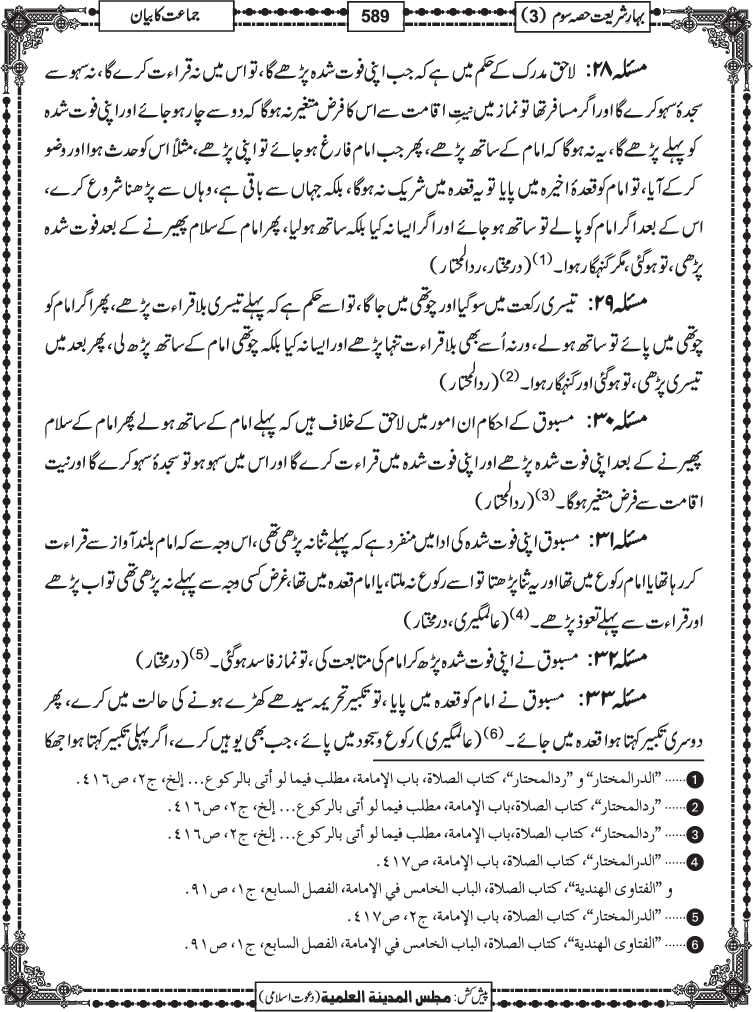 بہارِ شریعت حصہ سوم (3)
589
جماعت کا بیان
مسئلہ ۲۸: لاحق مدرک کے حکم میں ہے کہ جب اپنی فوت شدہ پڑھے گا، تو اس میں نہ قراءت کرے گا، نہ سہو سے
سجدۂ سہو کرے گا اور اگر مسافر تھا تو نماز میں نیتِ اقامت سے اس کا فرض متغیر نہ ہوگا کہ دو سے چار ہو جائے اور اپنی فوت شدہ
کو پہلے پڑھے گا، یہ نہ ہوگا کہ امام کے ساتھ پڑھے، پھر جب امام فارغ ہو جائے تو اپنی پڑھے، مثلاً اس کو حدث ہوا اور وضو
کر کے آیا، تو امام کو قعدۂ اخیرہ میں پایا تو یہ قعدہ میں شریک نہ ہوگا، بلکہ جہاں سے باقی ہے، وہاں سے پڑھنا شروع کرے،
اس کے بعد اگر امام کو پالے تو ساتھ ہو جائے اور اگر ایسا نہ کیا بلکہ ساتھ ہولیا، پھر امام کے سلام پھیرنے کے بعد فوت شدہ
پڑھی، تو ہوگئی، مگر گنہگار ہوا۔ (1) (درمختار، ردالمحتار)
مسئلہ ۲۹: تیسری رکعت میں سو گیا اور چوتھی میں جاگا، تو اسے حکم ہے کہ پہلے تیسری بلا قراءت پڑھے، پھر اگر امام کو
چوتھی میں پائے تو ساتھ ہولے، ورنہ اُسے بھی بلا قراءت تنہا پڑھے اور ایسا نہ کیا بلکہ چوتھی امام کے ساتھ پڑھ لی، پھر بعد میں
تیسری پڑھی، تو ہوگئی اور گنہگار ہوا۔ (2) (ردالمحتار)
مسئلہ ۳۰: مسبوق کے احکام ان امور میں لاحق کے خلاف ہیں کہ پہلے امام کے ساتھ ہولے پھر امام کے سلام
پھیرنے کے بعد اپنی فوت شدہ پڑھے اور اپنی فوت شدہ میں قراءت کرے گا اور اس میں سہو ہو تو سجدۂ سہو کرے گا اور نیت
اقامت سے فرض متغیر ہوگا۔ (3) (ردالمحتار)
مسئلہ ۳۱: مسبوق اپنی فوت شدہ کی ادا میں منفرد ہے کہ پہلے ثنا نہ پڑھی تھی، اس وجہ سے کہ امام بلند آواز سے قراءت
کر رہا تھا یا امام رکوع میں تھا اور یہ ثنا پڑھتا تو اسے رکوع نہ ملتا، یا امام قعدہ میں تھا، غرض کسی وجہ سے پہلے نہ پڑھی تھی تو اب پڑھے
اور قراءت سے پہلے تعوذ پڑھے۔ (4) (عالمگیری، درمختار)
مسئلہ ۳۲: مسبوق نے اپنی فوت شدہ پڑھ کر امام کی متابعت کی، تو نماز فاسد ہوگئی۔ (5) (درمختار)
مسئلہ ۳۳: مسبوق نے امام کو قعدہ میں پایا، تو تکبیر تحریمہ سیدھے کھڑے ہونے کی حالت میں کرے، پھر
دوسری تکبیر کہتا ہوا قعدہ میں جائے۔ (6) (عالمگیری) رکوع و سجود میں پائے، جب بھی یوہیں کرے، اگر پہلی تکبیر کہتا ہوا جھکا
1 ...... "الدرالمختار" و "ردالمحتار"، کتاب الصلاة، باب الإمامة، مطلب فیما لو أتی بالرکوع... إلخ، ج٢، ص٤١٦.
2 ...... "ردالمحتار"، کتاب الصلاة،باب الإمامة، مطلب فیما لو أتی بالرکوع... إلخ، ج٢، ص٤١٦.
3 ...... "ردالمحتار"، کتاب الصلاة،باب الإمامة، مطلب فیما لو أتی بالرکوع... إلخ، ج٢، ص٤١٦.
4 ...... "الدرالمختار"، کتاب الصلاة، باب الإمامة، ص٤١٧.
و "الفتاوی الهندية"، کتاب الصلاة، الباب الخامس في الإمامة، الفصل السابع، ج١، ص٩١.
5 ...... "الدرالمختار"، کتاب الصلاة، باب الإمامة، ج٢، ص٤١٧.
6 ...... "الفتاوی الهندية"، کتاب الصلاة، الباب الخامس في الإمامة، الفصل السابع، ج١، ص٩١.
پیش کش: مجلس المدینة العلمیة (دعوت اسلامی)